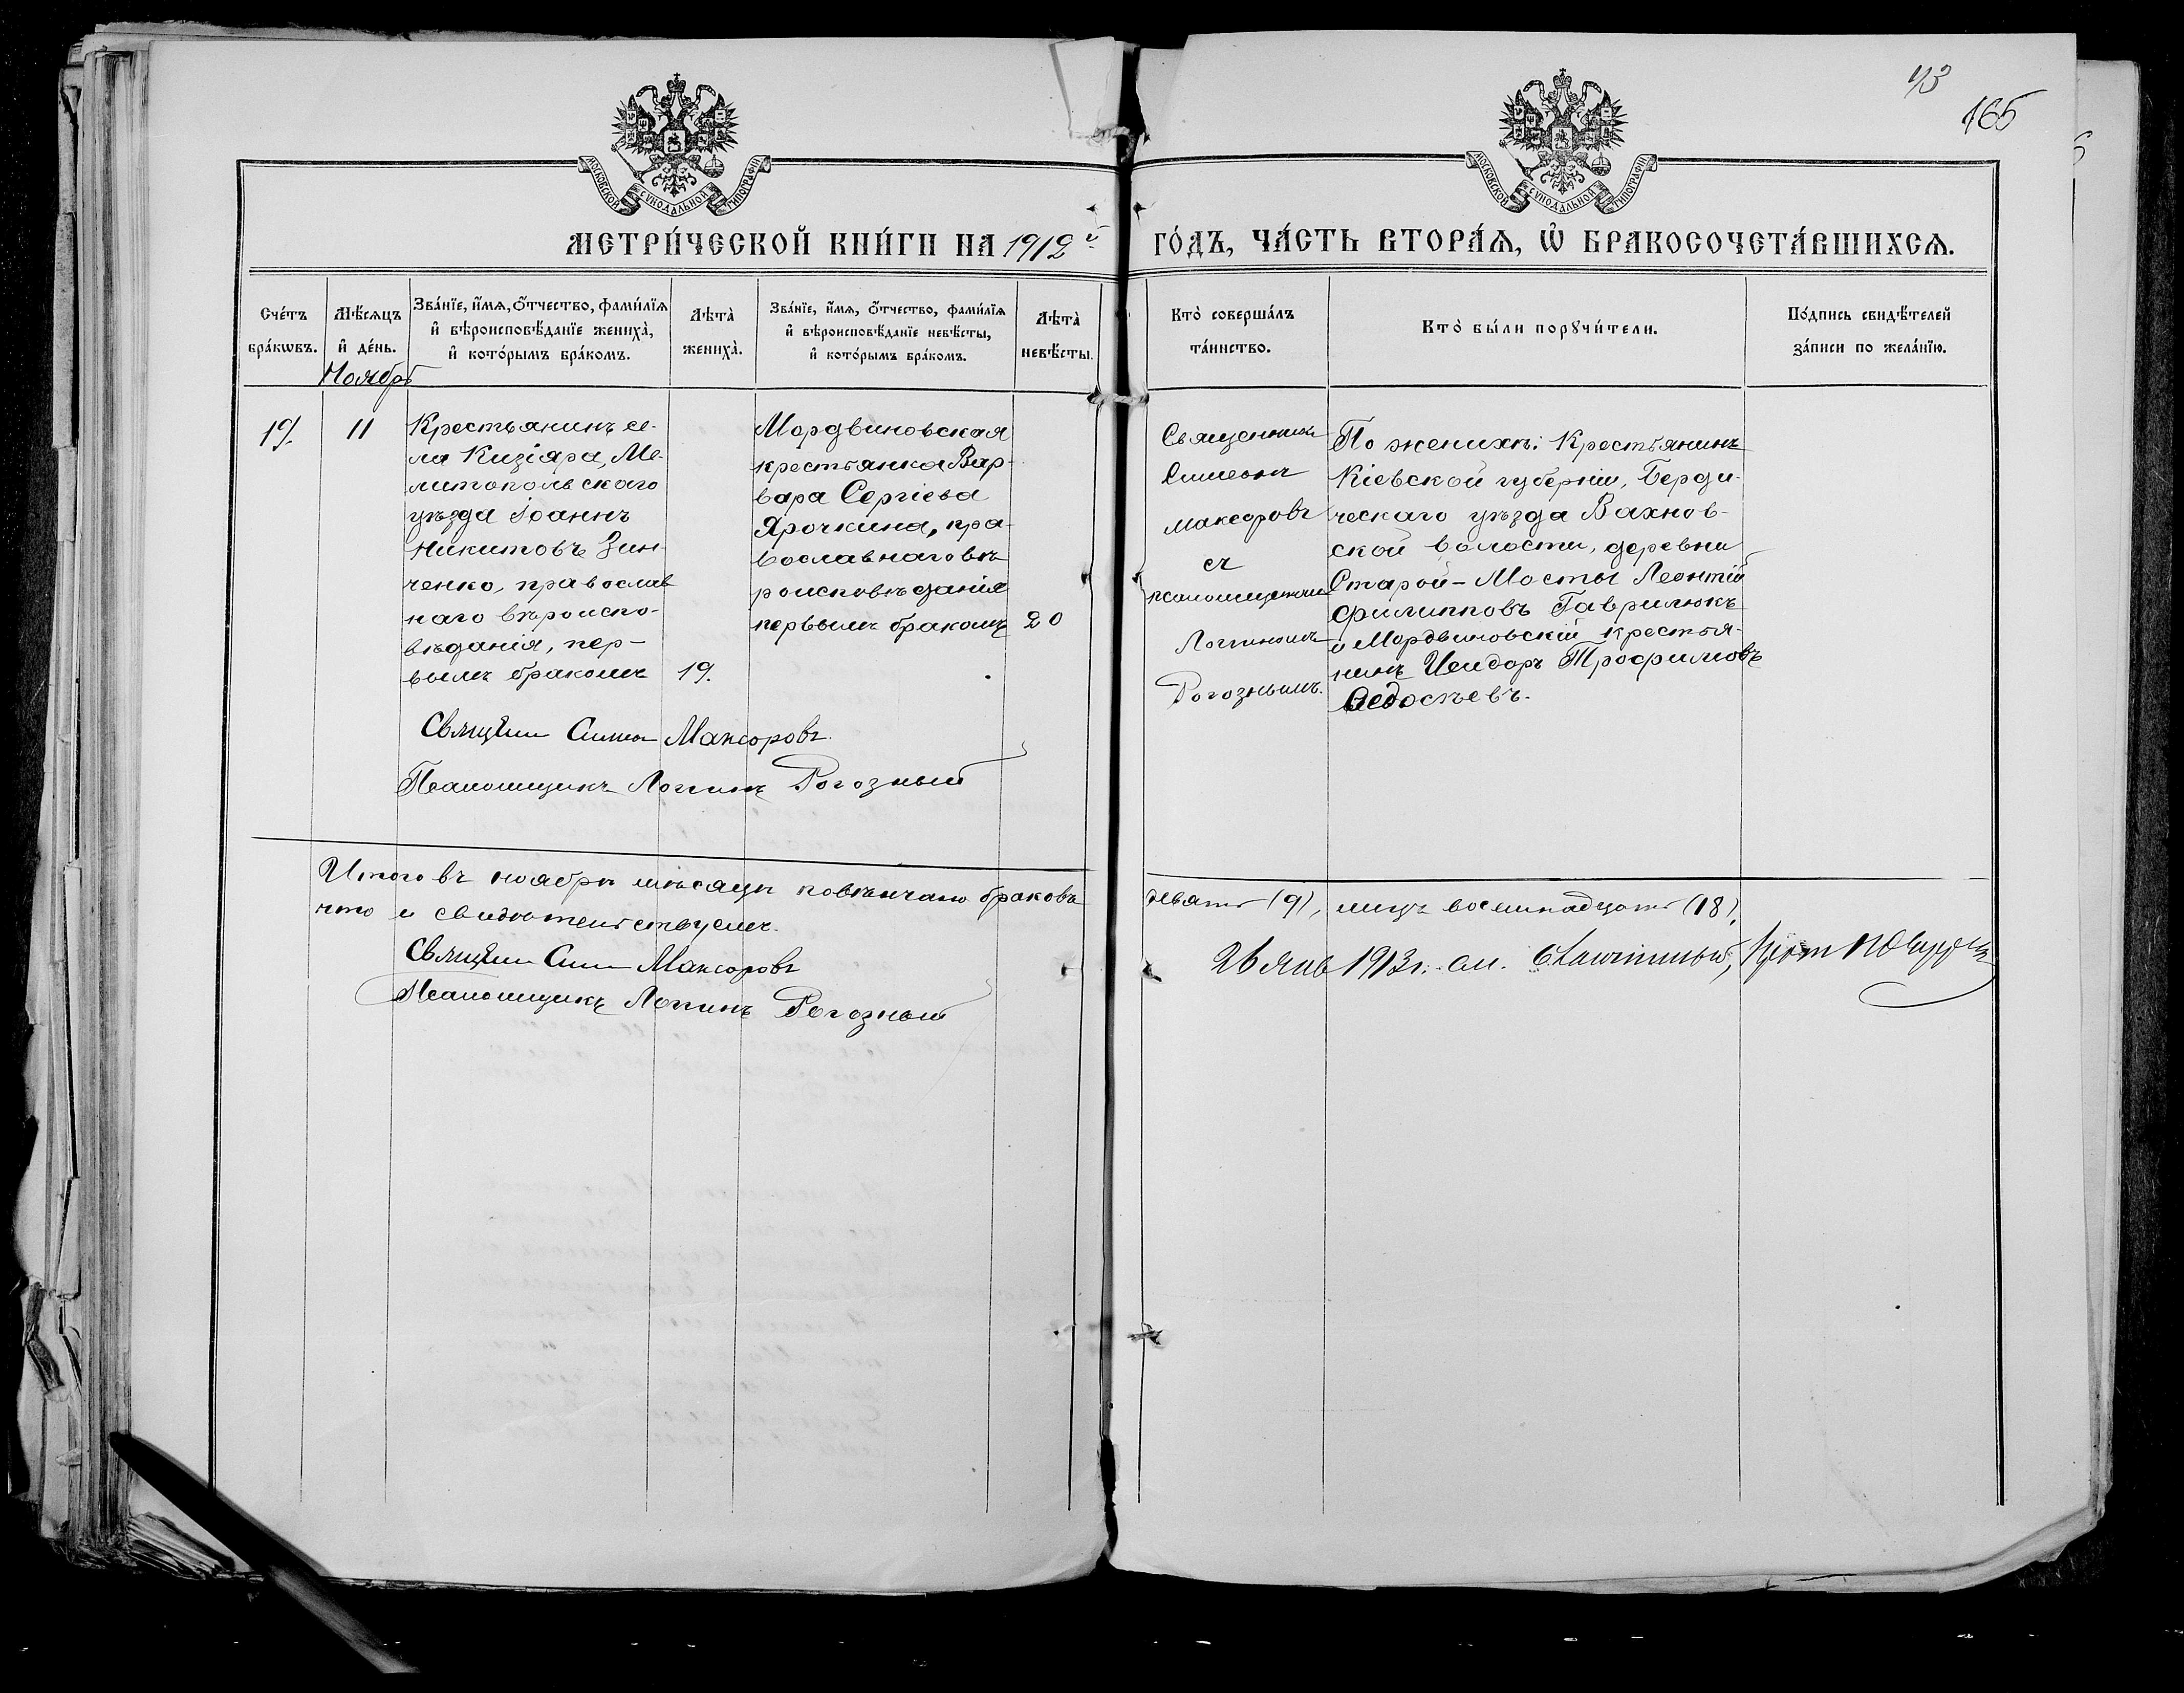 43
165
МОСКОВСКОЙ СѴНОДАЛЬНОЙ ТИПОГРАФІИ
МОСКОВСКОЙ СѴНОДАЛЬНОЙ ТИПОГРАФІИ
МЕТРИ́ЧЕСКОЙ КНИ́ГИ НА 1912й ГО́ДЪ, ЧА́СТЬ ВТОРА́Ѧ, Ѽ БРАКОСОЧЕТА́ВШИХСѦ.
Сче́тъ
бра́кѡвъ.
Мѣ́сѧцъ
и҆ де́нь.
Ноябрь
Зва́нїе, и҆́мѧ, ѻ҆́тчество, фами́лїѧ
и҆ вѣроисповѣ́данїе жениха̀,
и҆ кото́рымъ бра́комъ.
Лѣта̀
жениха̀.
Зва́нїе, и҆́мѧ, ѻ҆́тчество, фами́лїѧ
и҆ вѣроисповѣ́данїе невѣ́сты,
и҆ кото́рымъ бра́комъ.
Лѣта̀
невѣ́сты.
Кто̀ соверша́лъ
та́инство.
Кто̀ бы́ли порꙋчи́тели.
По́дпись свидѣ́телей
за́писи по жела́нїю.
19.
11
Крестьянинъ се-
ла Кизіяра, Ме-
литопольскаго
уѣзда Іоаннъ
Никитовъ Зин-
ченко, православ
наго вѣроиспо-
вѣданія, пер-
вымъ бракомъ
19.
Мордвиновская
крестьянка Вар-
вара Сергіева
Ярочкина, пра-
вославнаго вѣ-
роисповѣданія
первымъ бракомъ
20
Священникъ
Симеонъ
Максоровъ
съ
псаломщикомъ
Логиномъ
Рогознымъ.
По женихѣ: Крестьянинъ
Кіевской губерніи, Берди-
ческаго уѣзда Вахнов-
ской волости, деревни
Старой-Мосты Леонтій
Филипповъ Гаврилюкъ
и Мордвиновскій крестья-
нинъ Исидоръ Трофимовъ
Ѳедосѣевъ.
Священ Симеон Максоровъ.
Псаломщикъ Логинъ Рогозный
Итого въ ноябрѣ мѣсяцѣ повѣнчано браковъ девять (9), лицъ восемнадцать (18),
что и свидѣтельствуемъ.
Священ Сим Максоровъ
Псаломщикъ Логинъ Рогозный
26 янв 1913 г.